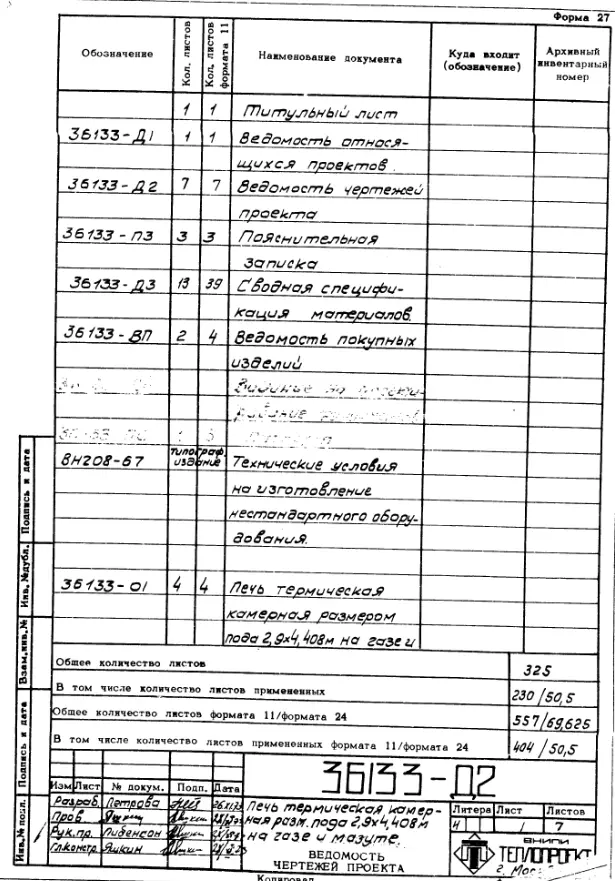 Форма 27
Обозначение Кол. листов Кол. листов формата 11 Наименование документа Куда входит (обозначение) Архивный инвентарный номер
1 1 Титульный лист
36133-Д1 1 1 Ведомость относя-
щихся проектов.
36133-Д2 7 7 Ведомость чертежей
проекта
36133-ПЗ 3 3 Пояснительная
записка
36133-Д3 13 39 Сводная специфи-
кация материалов.
36133-ВП 2 4 Ведомость покупных
изделий
ВН208-67 типограф. издание Технические условия
на изготовление
нестандартного обору-
дования.
36133-01 4 4 Печь термическая
камерная размером
пода 2,9х4,408м на газе и
Общее количество листов 325
В том числе количество листов примененных 230/50,5
Общее количество листов формата 11/формата 24 557/69,625
В том числе количество листов примененных формата 11/формата 24 404/50,5
Подпись и дата
Инв. №дубл.
Взам.инв.№
Подпись и дата
Инв.№ подл.
36133-Д2
Изм Лист № докум. Подп. Дата
Разраб. Петрова
Пров. Яшкин
Рук.пр. Либенсон
Гл.констр. Яшкин
Печь термическая камер-
ная разм. пода 2,9х4,408м
на газе и мазуте.
ВЕДОМОСТЬ
ЧЕРТЕЖЕЙ ПРОЕКТА
Литера Лист Листов
Ч 1 7
ВНИПИ
ТЕПЛОПРОЕКТ
г. Мос
Копировал